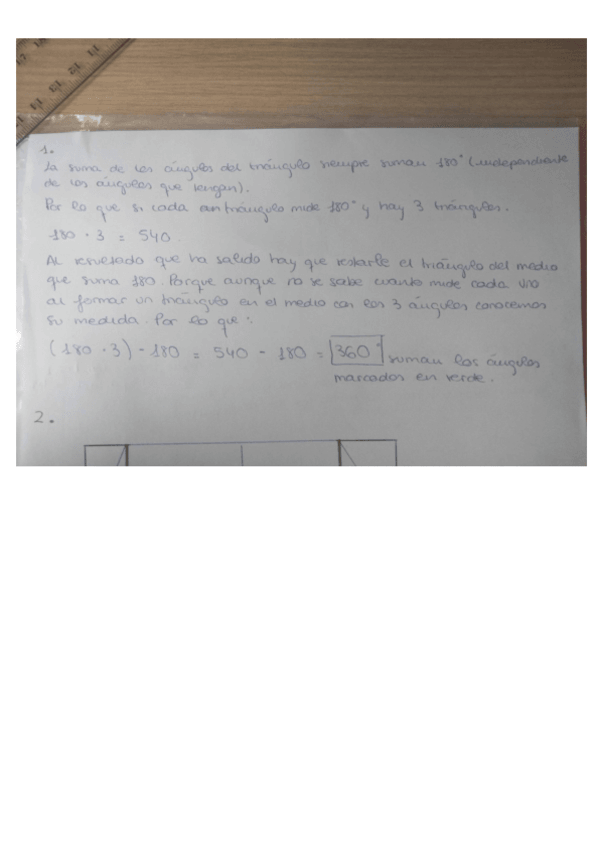 1.
La suma de los ángulos del triángulo siempre suman 180° (independiente
de los ángulos que tengan).
Por lo que si cada triángulo mide 180° y hay 3 triángulos.
180 · 3 = 540.
Al resultado que ha salido hay que restarle el triángulo del medio
que suma 180. Porque aunque no se sabe cuanto mide cada uno
al formar un triángulo en el medio con los 3 ángulos conocemos
su medida. Por lo que:
(180 · 3) - 180 = 540 - 180 = 360° suman los ángulos
marcados en verde.
2.